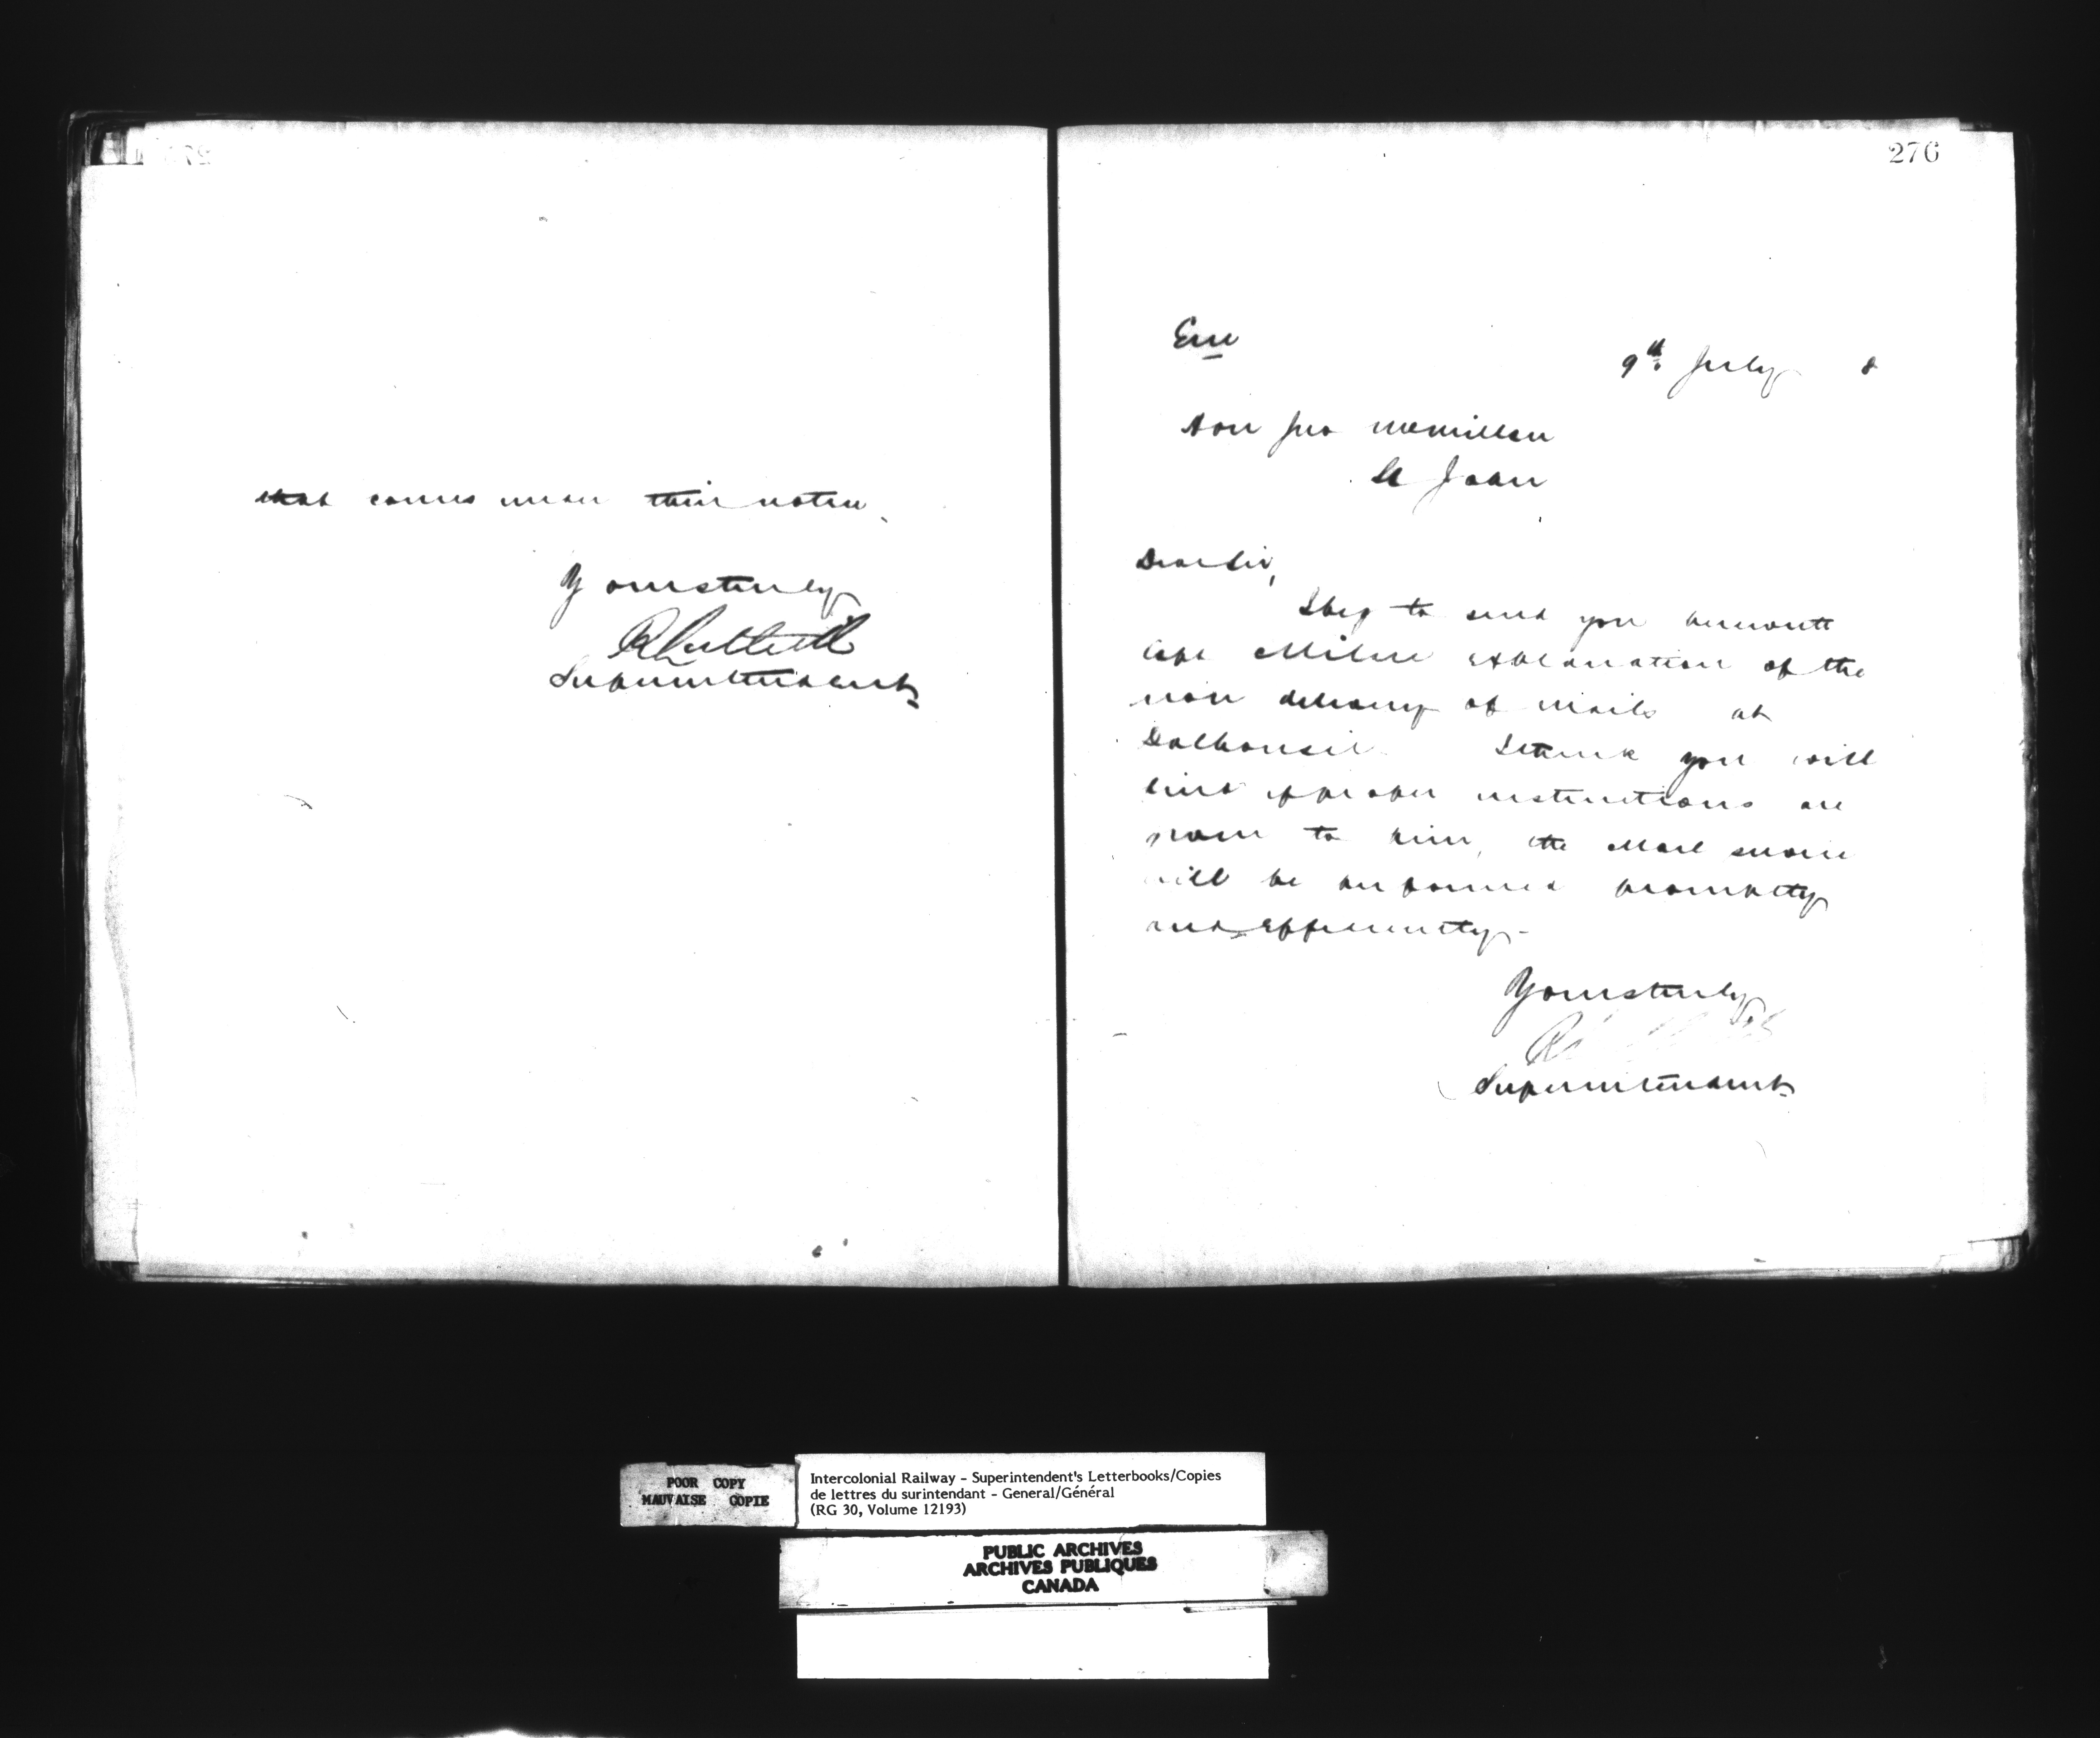 that comes under their notice.
Yours truly
Superintendent
276
Enc
9th July 8
Hon Jno McMillan
St John
Dear Sir,
I beg to send you herewith
Capt Milne explanation of the
non delivery of mails at
Dalhousie I think you will
find if proper instructions are
given to him, the Mail service
will be performed promptly
and efficiently-
Yours truly
Superintendent
POOR COPY
MAUVAISE COPIE
Intercolonial Railway - Superintendent's Letterbooks/Copies
de lettres du surintendant - General/Général
(RG 30, Volume 12193)
PUBLIC ARCHIVES
ARCHIVES PUBLIQUES
CANADA